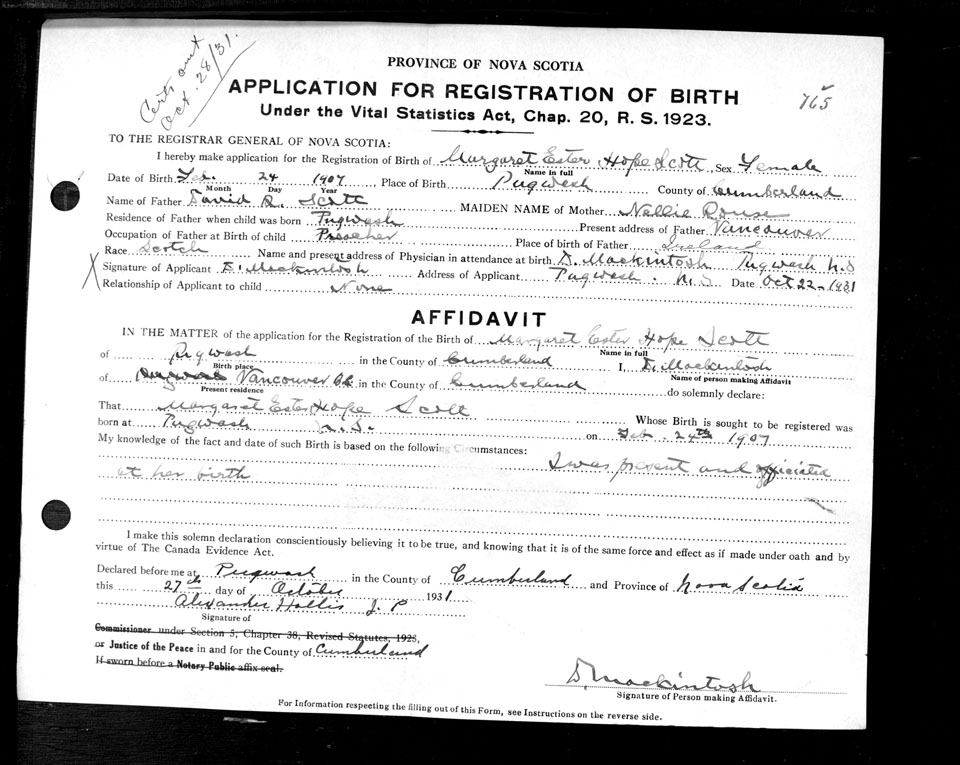 Certs out
Oct. 28/31.
765
PROVINCE OF NOVA SCOTIA
APPLICATION FOR REGISTRATION OF BIRTH
Under the Vital Statistics Act, Chap. 20, R. S. 1923.
TO THE REGISTRAR GENERAL OF NOVA SCOTIA:
I hereby make application for the Registration of Birth of Margaret Ester Hope Scott Sex Female
Name in full
Date of Birth Feb. 24 1907 Place of Birth Pugwash County of Cumberland
Month Day Year
Name of Father David R. Scott MAIDEN NAME of Mother Nellie Rouse
Residence of Father when child was born Pugwash Present address of Father Vancouver
Occupation of Father at Birth of child Preacher Place of birth of Father Ireland
Race Scotch Name and present address of Physician in attendance at birth D. Mackintosh Pugwash N.S
X Signature of Applicant D. Mackintosh Address of Applicant Pugwash. N.S Date Oct 22-1931
Relationship of Applicant to child None
AFFIDAVIT
IN THE MATTER of the application for the Registration of the Birth of Margaret Ester Hope Scott
Name in full
of Pugwash in the County of Cumberland I, D. Mackintosh
Birth place Name of person making Affidavit
of Vancouver BC in the County of Cumberland do solemnly declare:
Present residence
That Margaret Ester Hope Scott Whose Birth is sought to be registered was
born at Pugwash N.S. on Feb. 24th 1907
My knowledge of the fact and date of such Birth is based on the following Circumstances:
I was present and officiated
at her birth
I make this solemn declaration conscientiously believing it to be true, and knowing that it is of the same force and effect as if made under oath and by
virtue of The Canada Evidence Act.
Declared before me at Pugwash in the County of Cumberland and Province of Nova Scotia
this 27th day of October 1931
Alexander Hollis J. P
Signature of
Commissioner under Section 5, Chapter 38, Revised Statutes, 1923,
or Justice of the Peace in and for the County of Cumberland
If sworn before a Notary Public affix seal.
D. Mackintosh
Signature of Person making Affidavit.
For Information respecting the filling out of this Form, see Instructions on the reverse side.